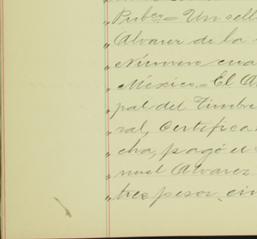 „Pubes= Un sell
„Alvarez de la
„Número cua
„México.= El A
„pal del Timbre
„ral, Certifica
„cha, pagó el
„nuel Alvarez
„tres pesos, cin